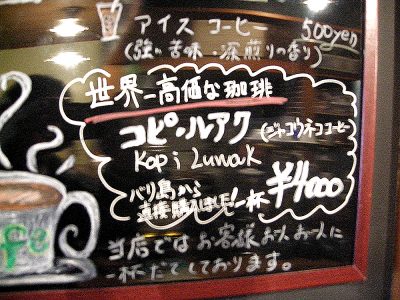 アイス コーヒー 500yen
(強い苦味・深煎りの香り)
世界一高価な珈琲
コピ・ルアク (ジャコウネココーヒー)
Kopi Luwak
バリ島から
直接購入しました! 一杯 ¥4000
当店では お客様お一人お一人に
一杯だてしております。
fe